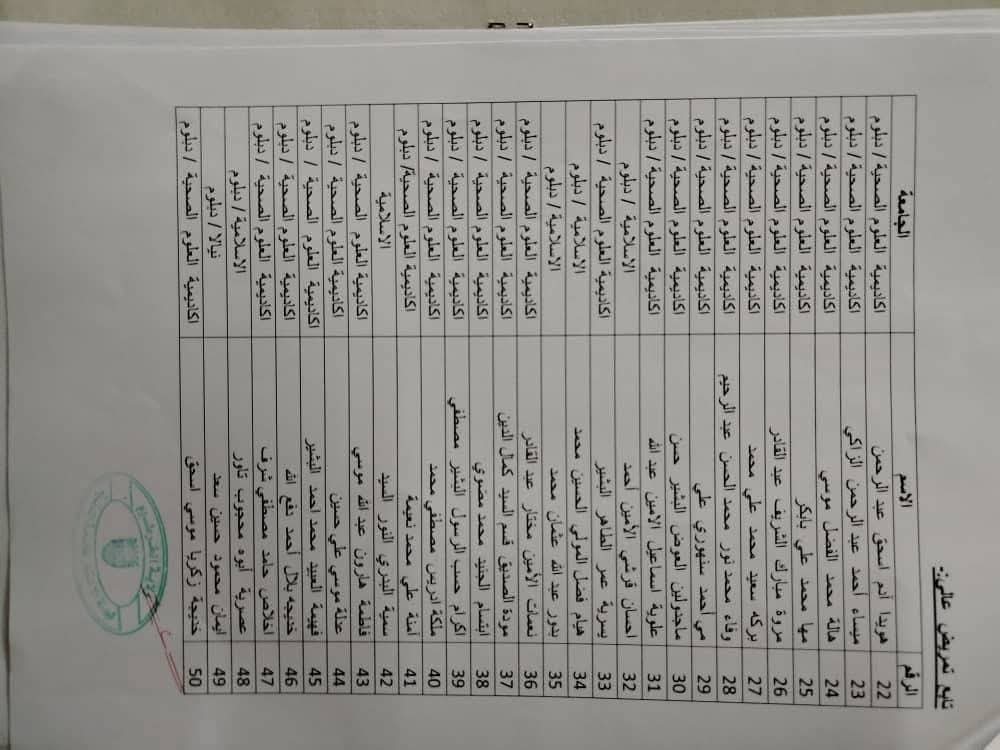 تابع تمريض عالي:-
الرقم الاسم الجامعة
22 هويدا آدم اسحق عبد الرحمن اكاديمية العلوم الصحية / دبلوم
23 ميساء أحمد عبد الرحمن الزاكي اكاديمية العلوم الصحية / دبلوم
24 هالة محمد الفضل موسي اكاديمية العلوم الصحية / دبلوم
25 مها محمد علي بابكر اكاديمية العلوم الصحية / دبلوم
26 مروة مبارك الشريف عبد القادر اكاديمية العلوم الصحية / دبلوم
27 بركه سعيد محمد علي محمد اكاديمية العلوم الصحية / دبلوم
28 وفاء محمد نور محمد الحسن عبد الرحيم اكاديمية العلوم الصحية / دبلوم
29 مي أحمد سنهوري علي اكاديمية العلوم الصحية / دبلوم
30 ماجدولين العوض البشير حسن اكاديمية العلوم الصحية / دبلوم
31 علوية اسماعيل الامين عبد الله اكاديمية العلوم الصحية / دبلوم
32 احسان قرشي الأمين أحمد الاسلامية / دبلوم
33 يسرية عمر الطاهر البشير اكاديمية العلوم الصحية / دبلوم
34 هيام فضل المولي الحسين محمد الاسلامية / دبلوم
35 بدور عبد الله عثمان محمد الاسلامية / دبلوم
36 نعمات الأمين مختار عبد القادر اكاديمية العلوم الصحية / دبلوم
37 مودة الصديق قسم السيد كمال الدين اكاديمية العلوم الصحية / دبلوم
38 ابتسام الجنيد محمد مضوي اكاديمية العلوم الصحية / دبلوم
39 اكرام حسب الرسول البشير مصطفي اكاديمية العلوم الصحية / دبلوم
40 ملكة ادريس مصطفي محمد اكاديمية العلوم الصحية / دبلوم
41 آمنة علي محمد نعيمة اكاديمية العلوم الصحية/ دبلوم
42 سمية البدري النور السيد الاسلامية
43 فاطمة هارون عبد الله موسي اكاديمية العلوم الصحية / دبلوم
44 عدلة موسي علي حسين اكاديمية العلوم الصحية / دبلوم
45 فهيمة العبيد محمد احمد البشير اكاديمية العلوم الصحية / دبلوم
46 خديجه بلال أحمد دفع الله اكاديمية العلوم الصحية / دبلوم
47 اخلاص حامد مصطفي شرف اكاديمية العلوم الصحية / دبلوم
48 عصرية ابوه محجوب تاور الاسلامية / دبلوم
49 ايمان محمود حسين سعد نيالا / دبلوم
50 خديجة زكريا موسي اسحق اكاديمية العلوم الصحية / دبلوم